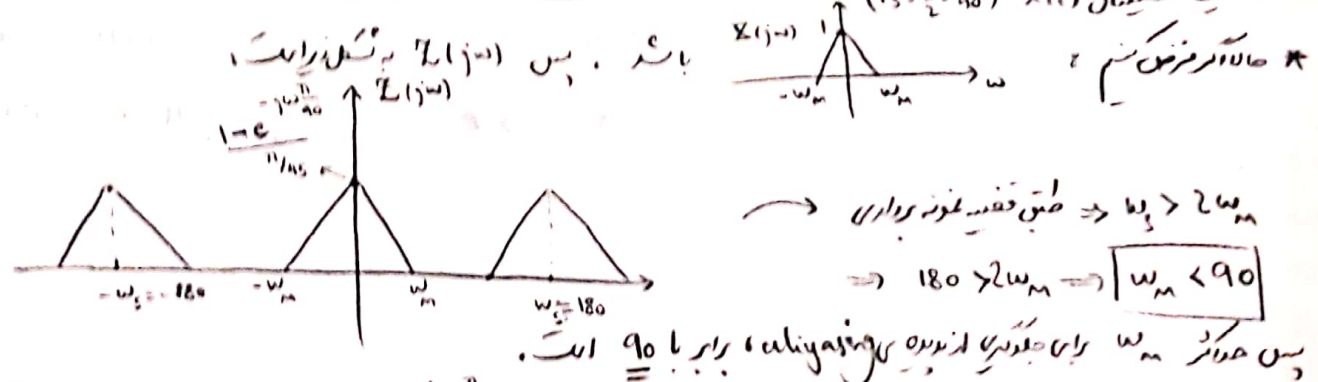 * حالا اگر فرض کنیم : X(jω) 1 -ω_M ω_M ω باشد ، پس Z(jω) به شکل زیر است.
Z(jω)
1-e^{-jωπ/90}
π/45
-ω_s=-180 -ω_M ω_M ω_s=180
طبق قضیه نمونه برداری ⇒ ω_s > 2ω_M
⇒ 180 > 2ω_M ⇒ ω_M < 90
پس حداکثر ω_M برای جلوگیری از پدیده ی aliyasing ، برابر با 90 است.